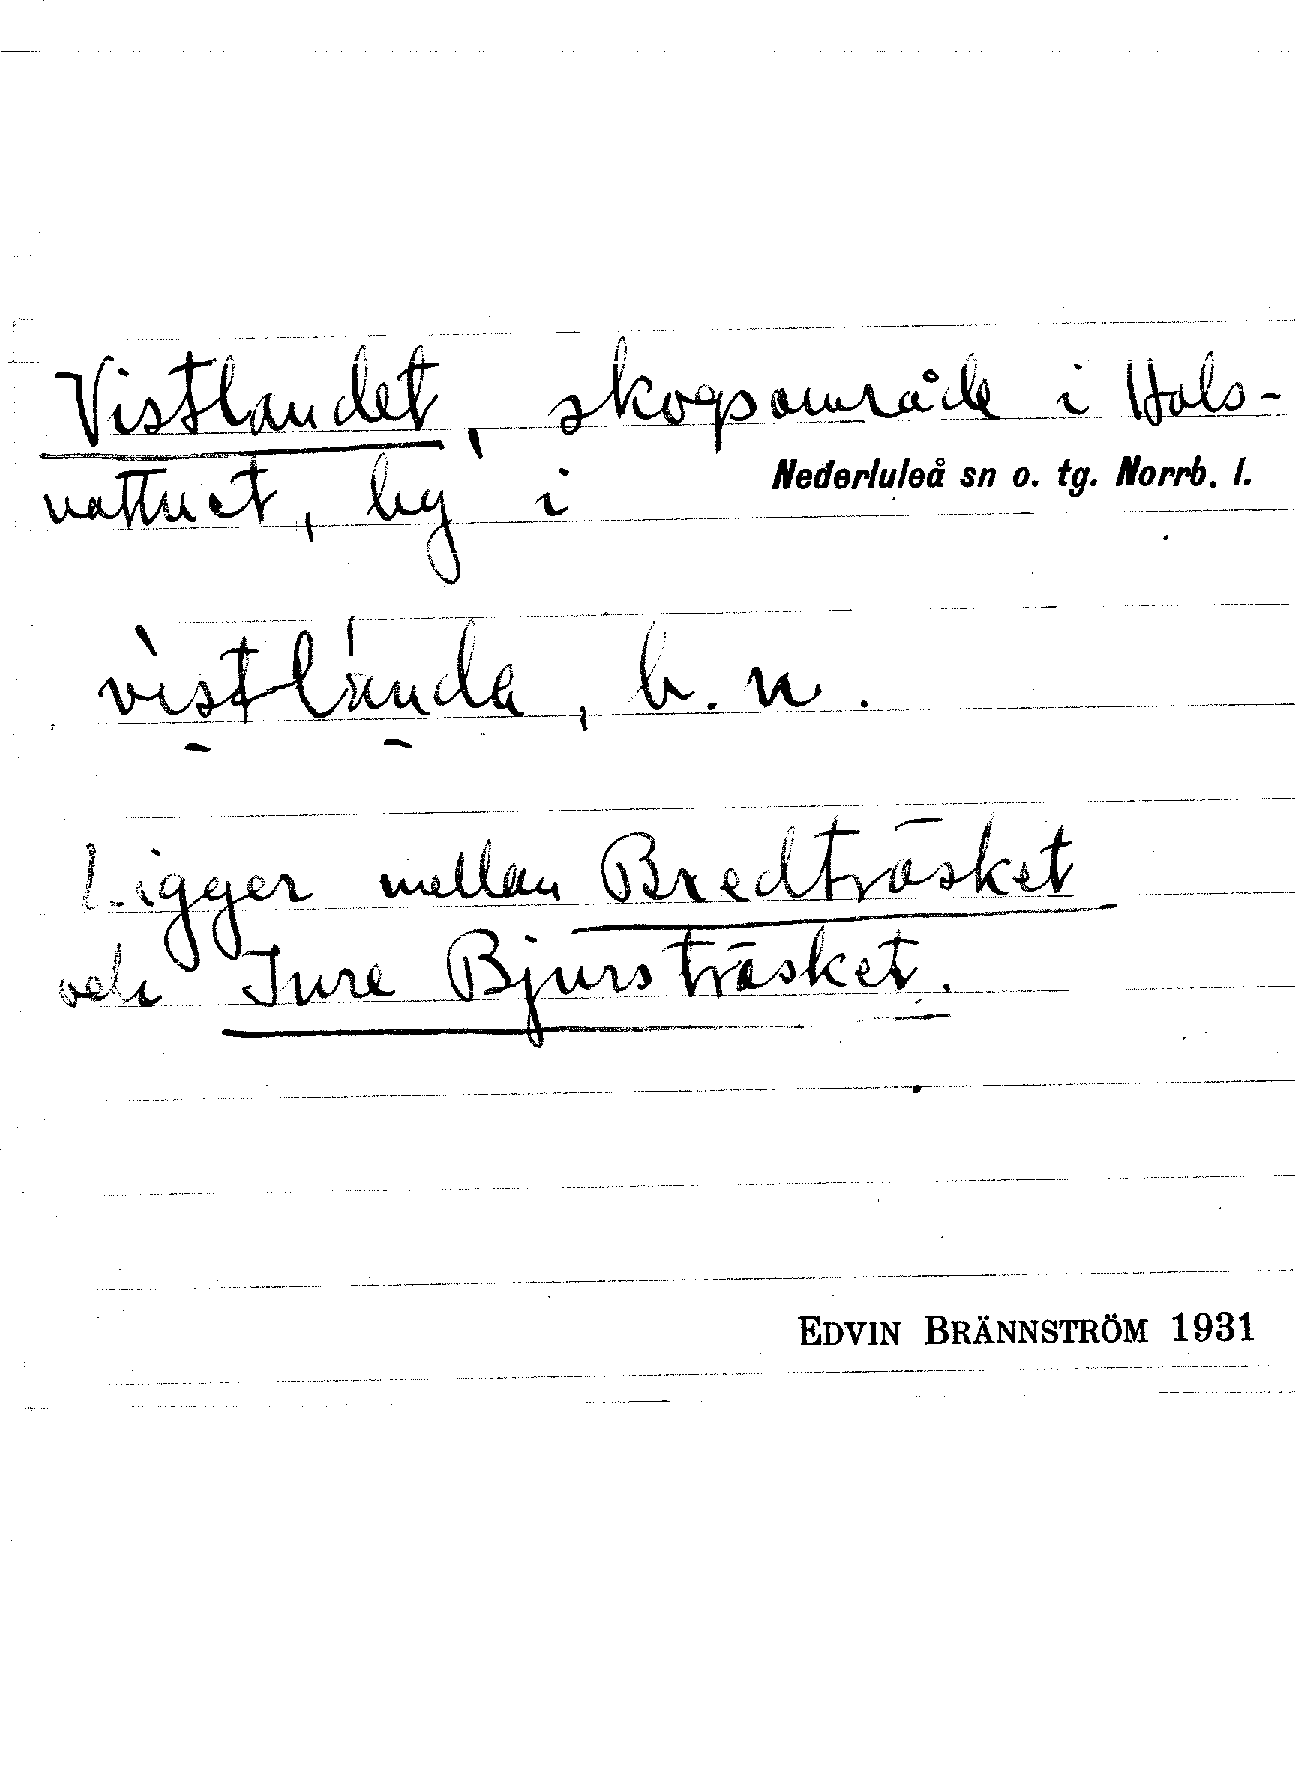 Vistlandet, skogsområde i Hols-
vattnet, by i Nederluleå sn o. tg. Norrb. l.
vistlanda, b. n.
Ligger mellan Bredträsket
och Inre Bjursträsket.
EDVIN BRÄNNSTRÖM 1931